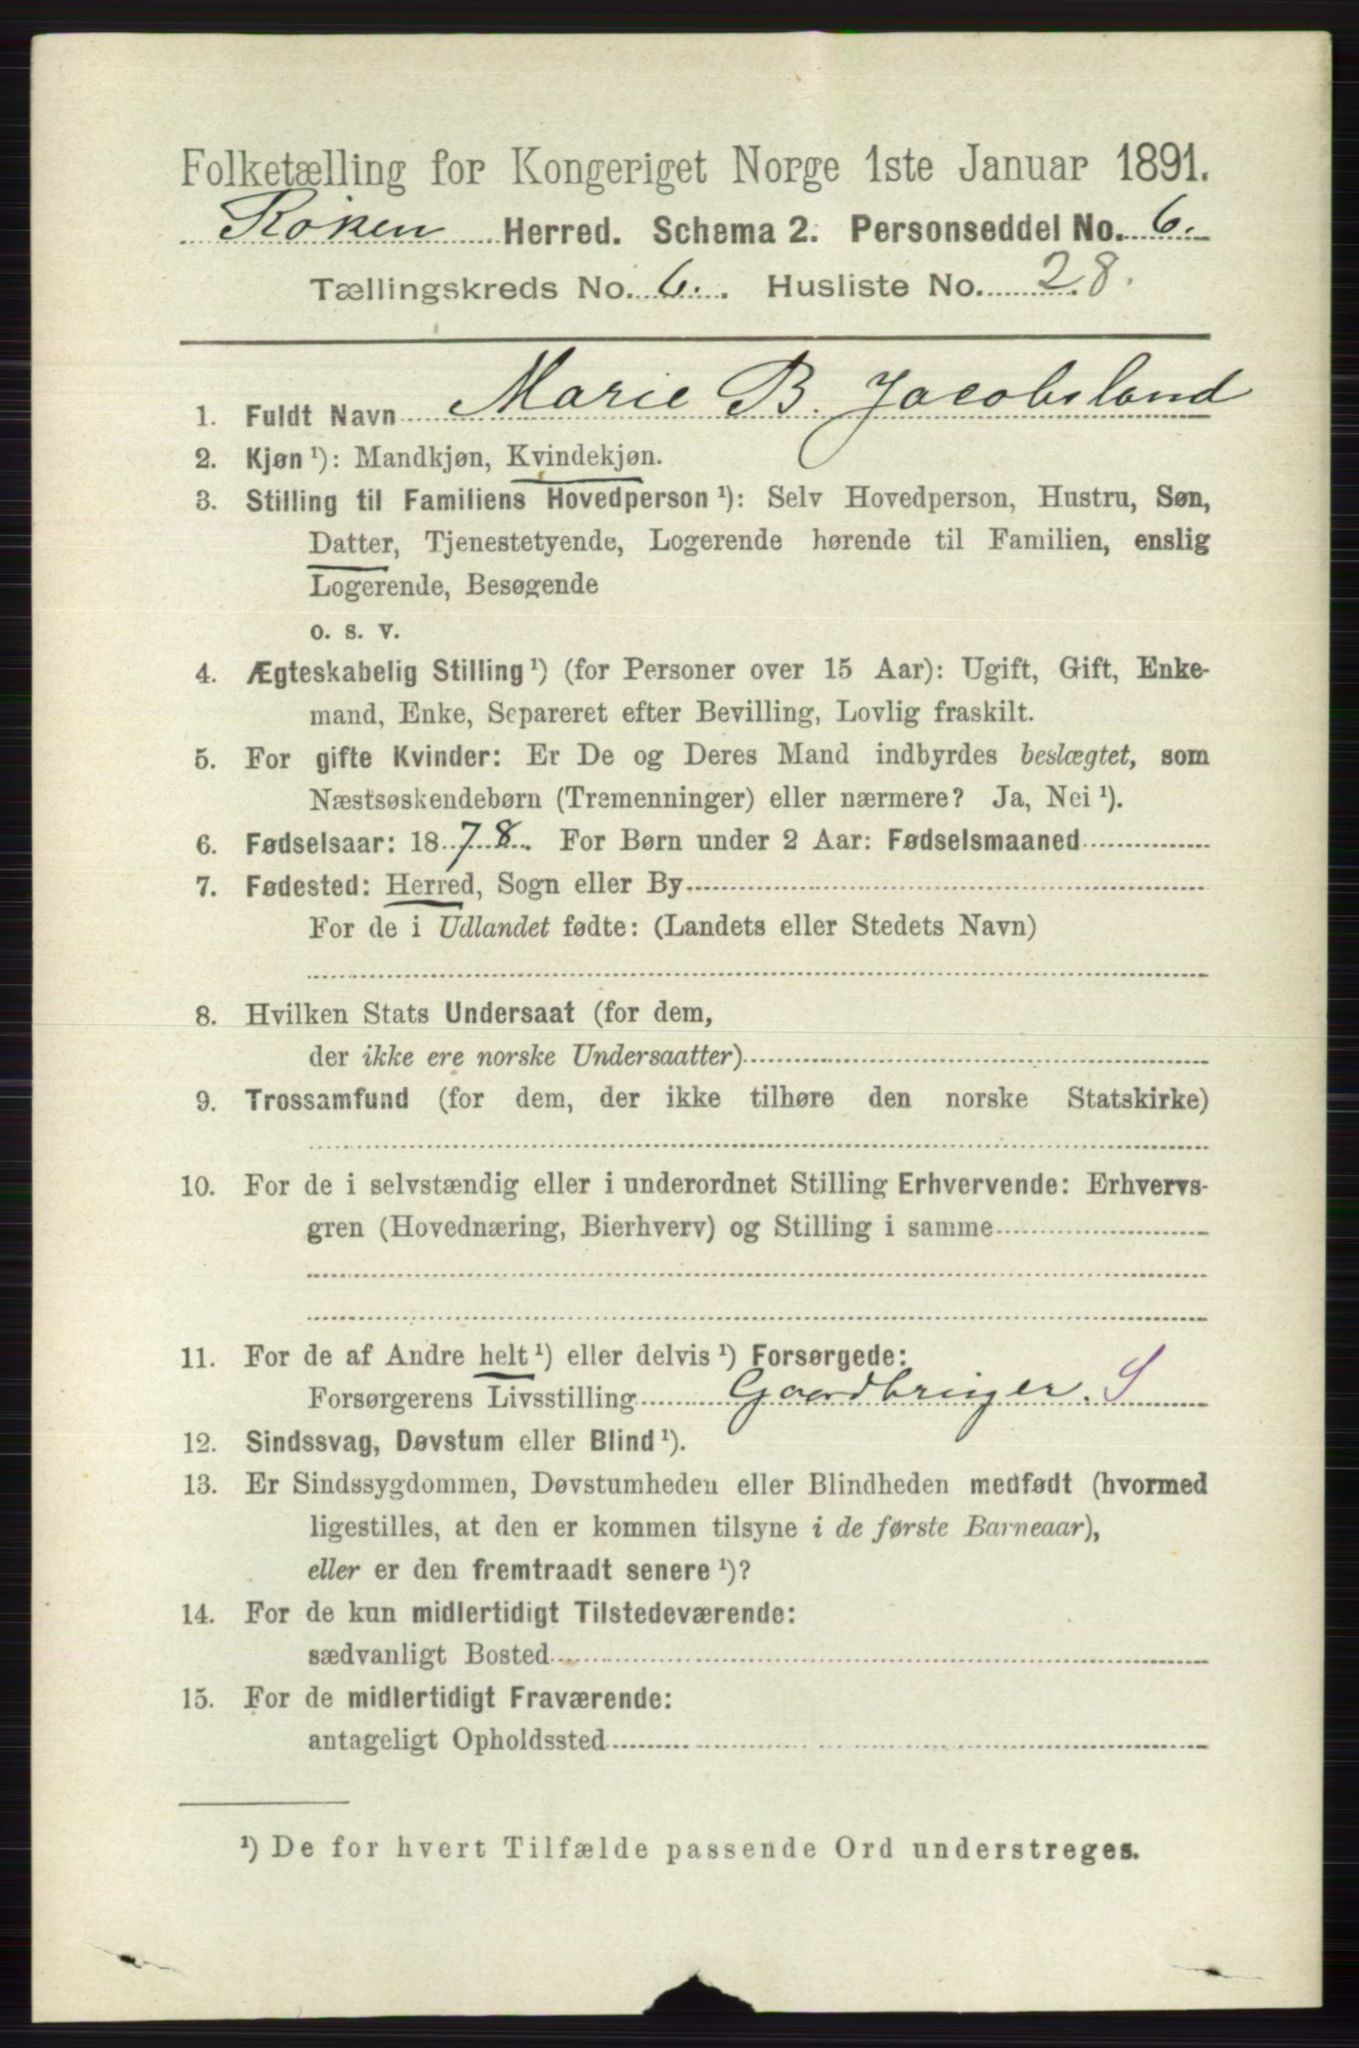 Folketælling for Kongeriget Norge 1ste Januar 1891.
Röken Herred. Schema 2. Personseddel No. 6.
Tællingskreds No. 6. Husliste No. 28.
1. Fuldt Navn Marie B. Jacobsland
2. Kjøn ¹): Mandkjøn, Kvindekjøn.
3. Stilling til Familiens Hovedperson ¹): Selv Hovedperson, Hustru, Søn,
Datter, Tjenestetyende, Logerende hørende til Familien, enslig
Logerende, Besøgende
o. s. v.
4. Ægteskabelig Stilling ¹) (for Personer over 15 Aar): Ugift, Gift, Enke-
mand, Enke, Separeret efter Bevilling, Lovlig fraskilt.
5. For gifte Kvinder: Er De og Deres Mand indbyrdes beslægtet, som
Næstsøskendebørn (Tremenninger) eller nærmere? Ja, Nei ¹).
6. Fødselsaar: 1878. For Børn under 2 Aar: Fødselsmaaned
7. Fødested: Herred, Sogn eller By
For de i Udlandet fødte: (Landets eller Stedets Navn)
8. Hvilken Stats Undersaat (for dem,
der ikke ere norske Undersaatter)
9. Trossamfund (for dem, der ikke tilhøre den norske Statskirke)
10. For de i selvstændig eller i underordnet Stilling Erhvervende: Erhvervs-
gren (Hovednæring, Bierhverv) og Stilling i samme
11. For de af Andre helt ¹) eller delvis ¹) Forsørgede:
Forsørgerens Livsstilling Gaardbruger. S
12. Sindssvag, Døvstum eller Blind ¹).
13. Er Sindssygdommen, Døvstumheden eller Blindheden medfødt (hvormed
ligestilles, at den er kommen tilsyne i de første Barneaar),
eller er den fremtraadt senere ¹)?
14. For de kun midlertidigt Tilstedeværende:
sædvanligt Bosted
15. For de midlertidigt Fraværende:
antageligt Opholdssted
¹) De for hvert Tilfælde passende Ord understreges.